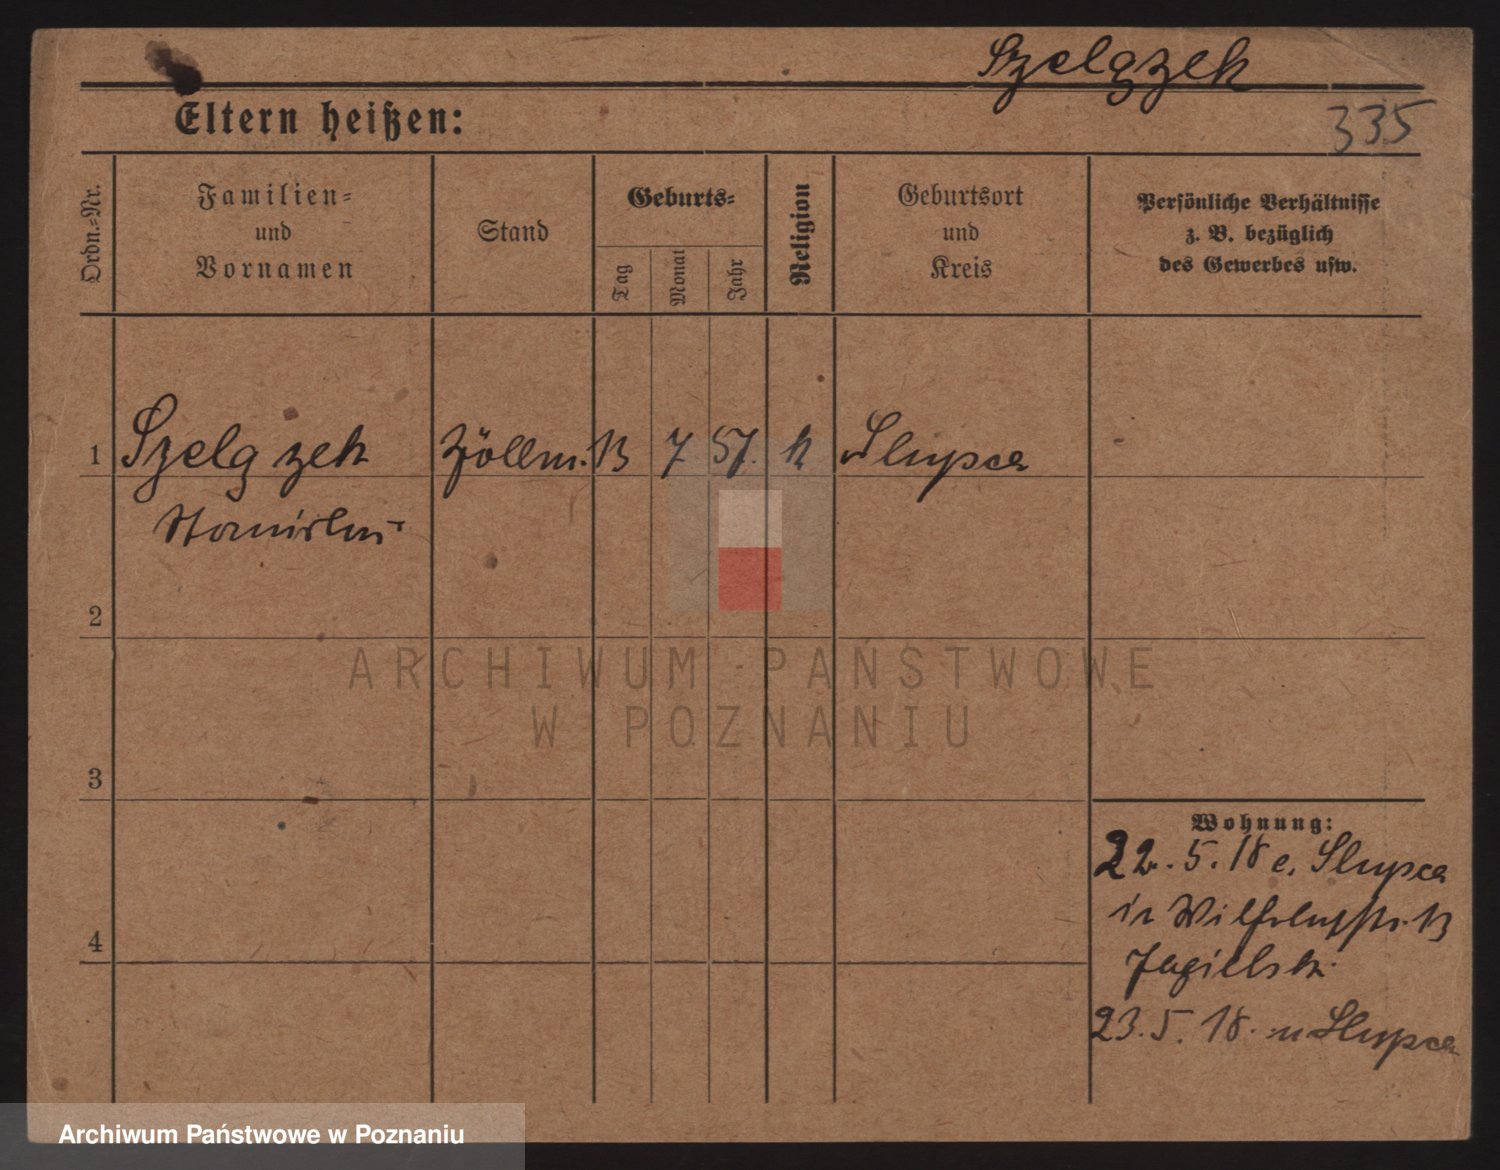 Szelązek
335
Eltern heißen:
Ordn.-Nr.
Familien-
und
Vornamen
Stand
Geburts-
Tag
Monat
Jahr
Religion
Geburtsort
und
Kreis
Persönliche Verhältnisse
z. B. bezüglich
des Gewerbes usw.
1 Szelązek Zöllm. 13 7 57. k Slupca
Stanislus
2
3
4
Wohnung:
22. 5. 18 e. Slupca
in 13
Jagielski
23. 5. 18. n Slupca
ARCHIWUM PAŃSTWOWE
W POZNANIU
Archiwum Państwowe w Poznaniu